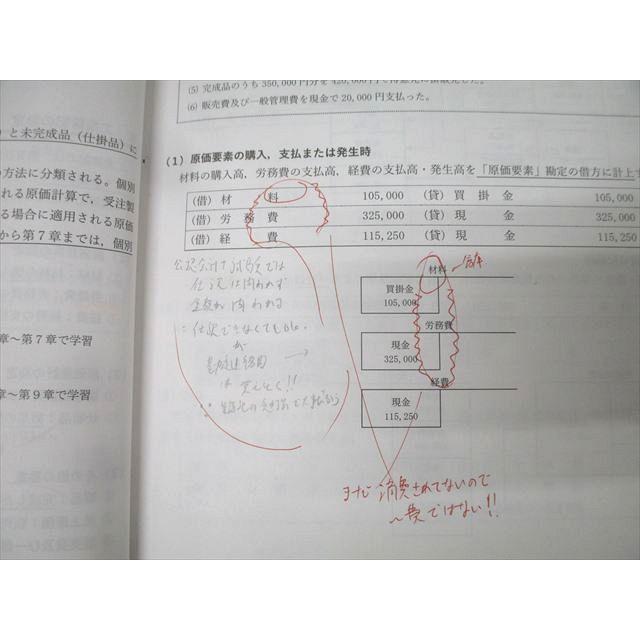 (5) 完成品のうち 350,000 円分を 420,000 円で得意先に掛販売した。
(6) 販売費及び一般管理費を現金で 20,000 円支払った。
) と未完成品（仕掛品）に
の方法に分類される。個別
れる原価計算で，受注製
る場合に適用される原価
から第７章までは，個別
章～第７章で学習
章～第９章で学習
(1) 原価要素の購入，支払または発生時
材料の購入高，労務費の支払高，経費の支払高・発生高を「原価要素」勘定の借方に計上す
(借) 材 料 105,000 (貸) 買 掛 金 105,000
(借) 労 務 費 325,000 (貸) 現 金 325,000
(借) 経 費 115,250 (貸) 現 金 115,250
材料
買掛金
105,000
労務費
現金
325,000
経費
現金
115,250
仕訳は問われず
金額が問われる
∴仕訳できなくてもOK.
が
→
まだ 消費されてないので
～費ではない!!